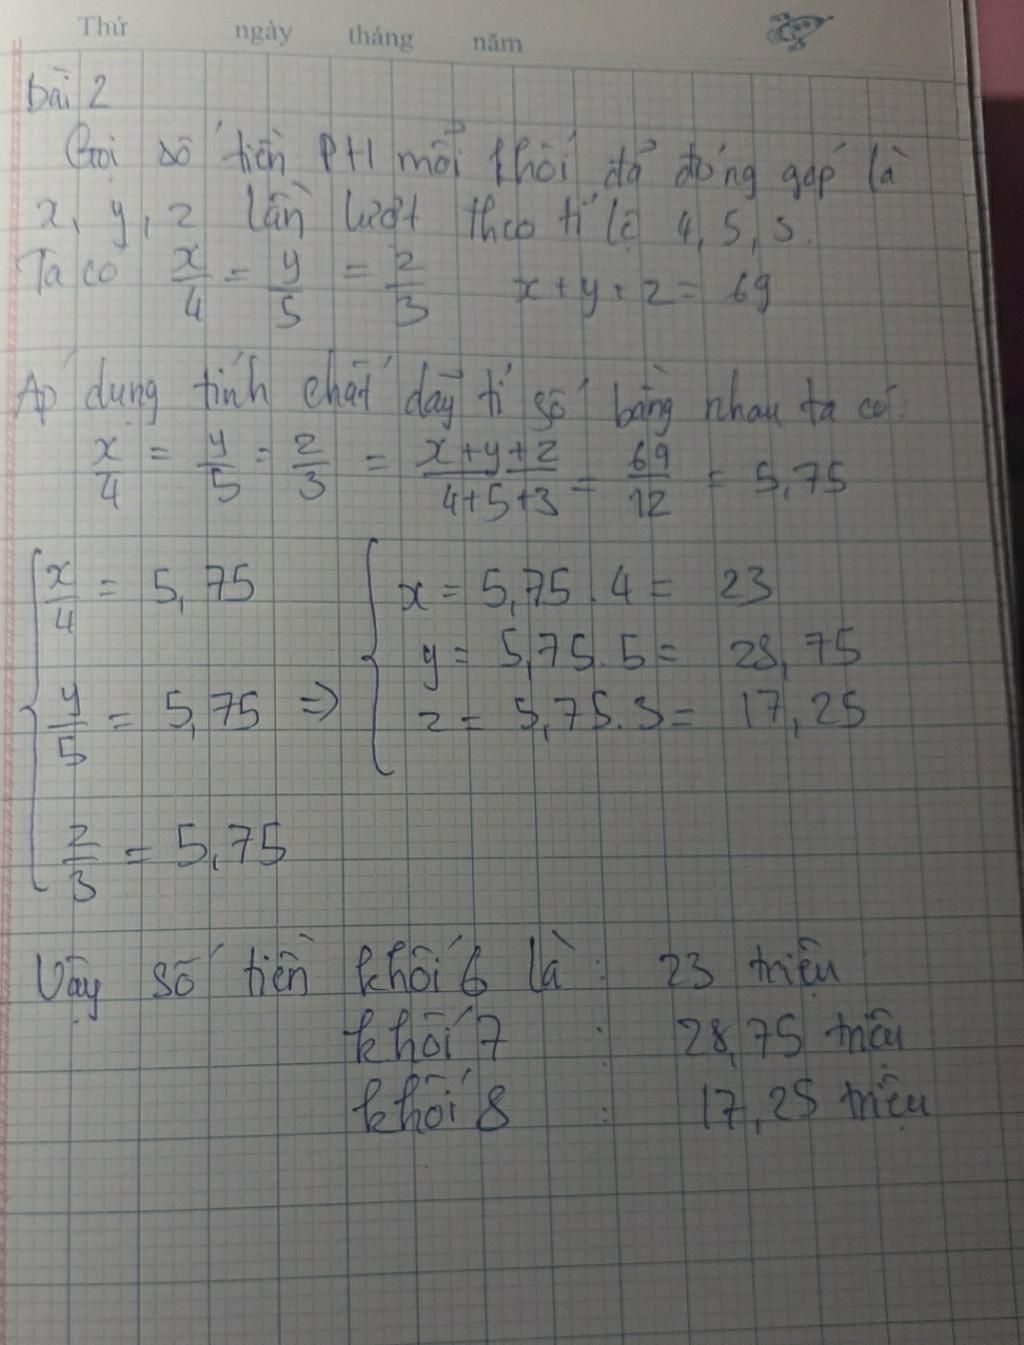 Thứ ngày tháng năm
Bài 2
Gọi số tiền PH mỗi khối đã đóng góp là
x, y, z lần lượt theo tỉ lệ 4, 5, 3.
Ta có x/4 = y/5 = z/3 x + y + z = 69
Áp dụng tính chất dãy tỉ số bằng nhau ta có:
x/4 = y/5 = z/3 = (x+y+z)/(4+5+3) = 69/12 = 5,75
x/4 = 5,75
y/5 = 5,75 =>
z/3 = 5,75
x = 5,75 . 4 = 23
y = 5,75 . 5 = 28,75
z = 5,75 . 3 = 17,25
Vậy số tiền khối 6 là : 23 triệu
khối 7 : 28,75 triệu
khối 8 : 17,25 triệu